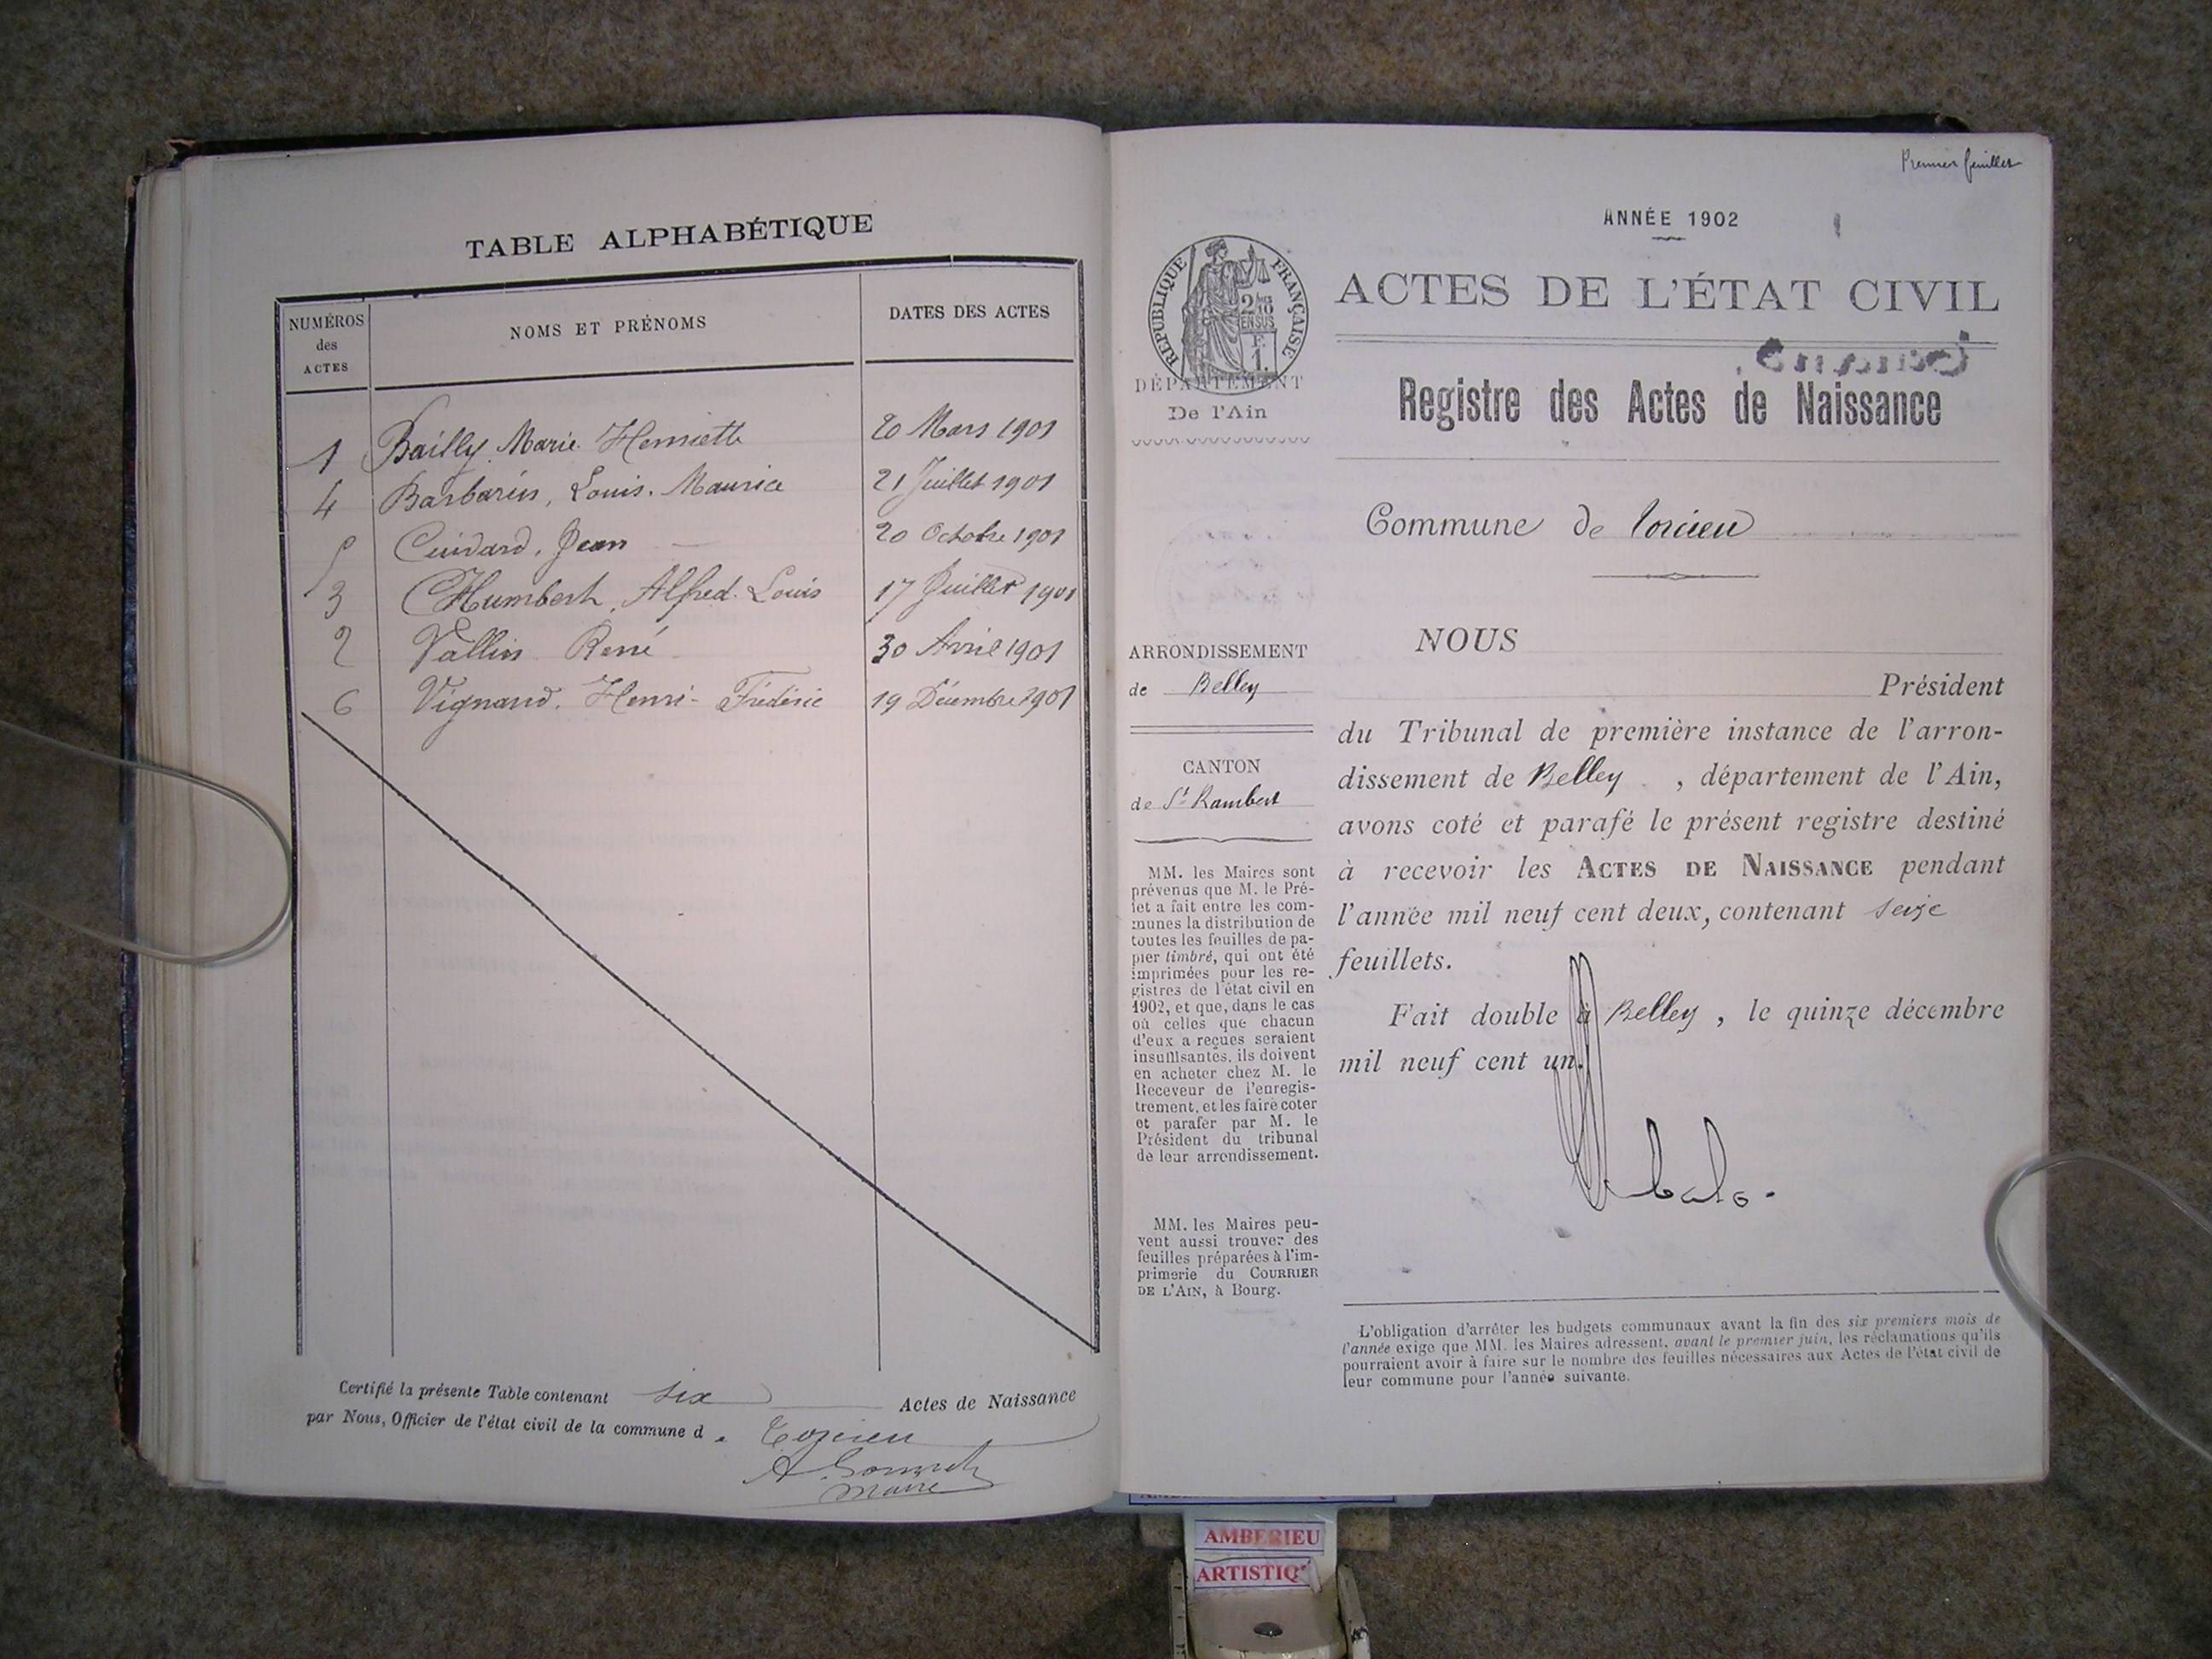 TABLE ALPHABÉTIQUE
NUMÉROS des ACTES
NOMS ET PRÉNOMS
DATES DES ACTES
1 Bailly Marie Henriette 20 Mars 1901
4 Barbarin, Louis. Maurice 21 Juillet 1901
5 Cuidard, Jean 20 Octobre 1901
3 Humbert, Alfred. Louis 17 Juillet 1901
2 Vallin René 30 Avril 1901
6 Vignand, Henri-Frédéric 19 Décembre 1901
Certifié la présente Table contenant six Actes de Naissance
par Nous, Officier de l'état civil de la commune d e Torcieu
Maire
Premier feuillet
ANNÉE 1902
RÉPUBLIQUE FRANÇAISE
ACTES DE L'ÉTAT CIVIL
DÉPARTEMENT
De l'Ain
Registre des Actes de Naissance
Commune de Torcieu
ARRONDISSEMENT
de Belley
CANTON
de St Rambert
MM. les Maires sont
prévenus que M. le Pré-
fet a fait entre les com-
munes la distribution de
toutes les feuilles de pa-
pier timbré, qui ont été
imprimées pour les re-
gistres de l'état civil en
1902, et que, dans le cas
où celles que chacun
d'eux a reçues seraient
insuffisantes, ils doivent
en acheter chez M. le
Receveur de l'enregis-
trement, et les faire coter
et parafer par M. le
Président du tribunal
de leur arrondissement.
MM. les Maires peu-
vent aussi trouver des
feuilles préparées à l'im-
primerie du COURRIER
DE L'AIN, à Bourg.
NOUS
Président
du Tribunal de première instance de l'arron-
dissement de Belley , département de l'Ain,
avons coté et parafé le présent registre destiné
à recevoir les ACTES DE NAISSANCE pendant
l'année mil neuf cent deux, contenant seize
feuillets.
Fait double à Belley , le quinze décembre
mil neuf cent un.
L'obligation d'arrêter les budgets communaux avant la fin des six premiers mois de
l'année exige que MM. les Maires adressent, avant le premier juin, les réclamations qu'ils
pourraient avoir à faire sur le nombre des feuilles nécessaires aux Actes de l'état civil de
leur commune pour l'année suivante.
AMBERIEU
ARTISTIQ'